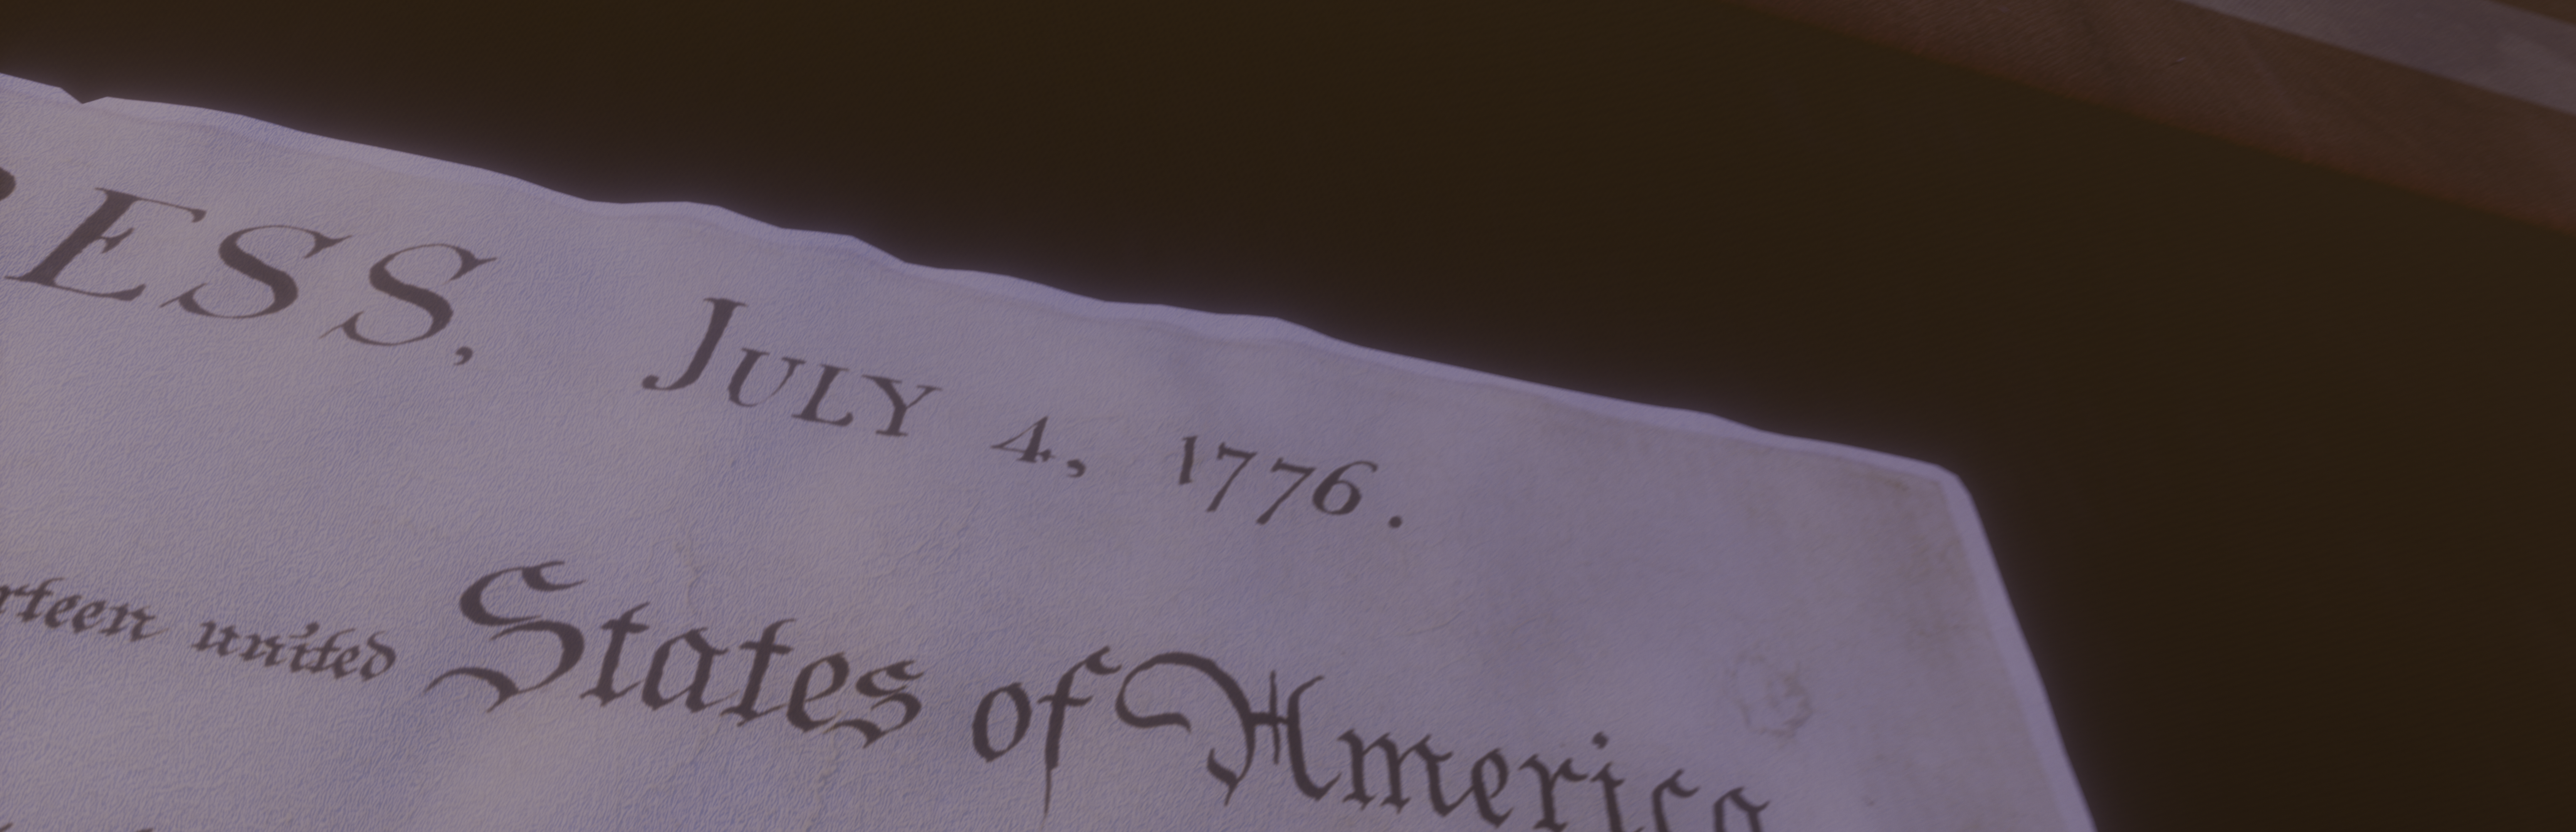 RESS, JULY 4, 1776.
rteen united States of America